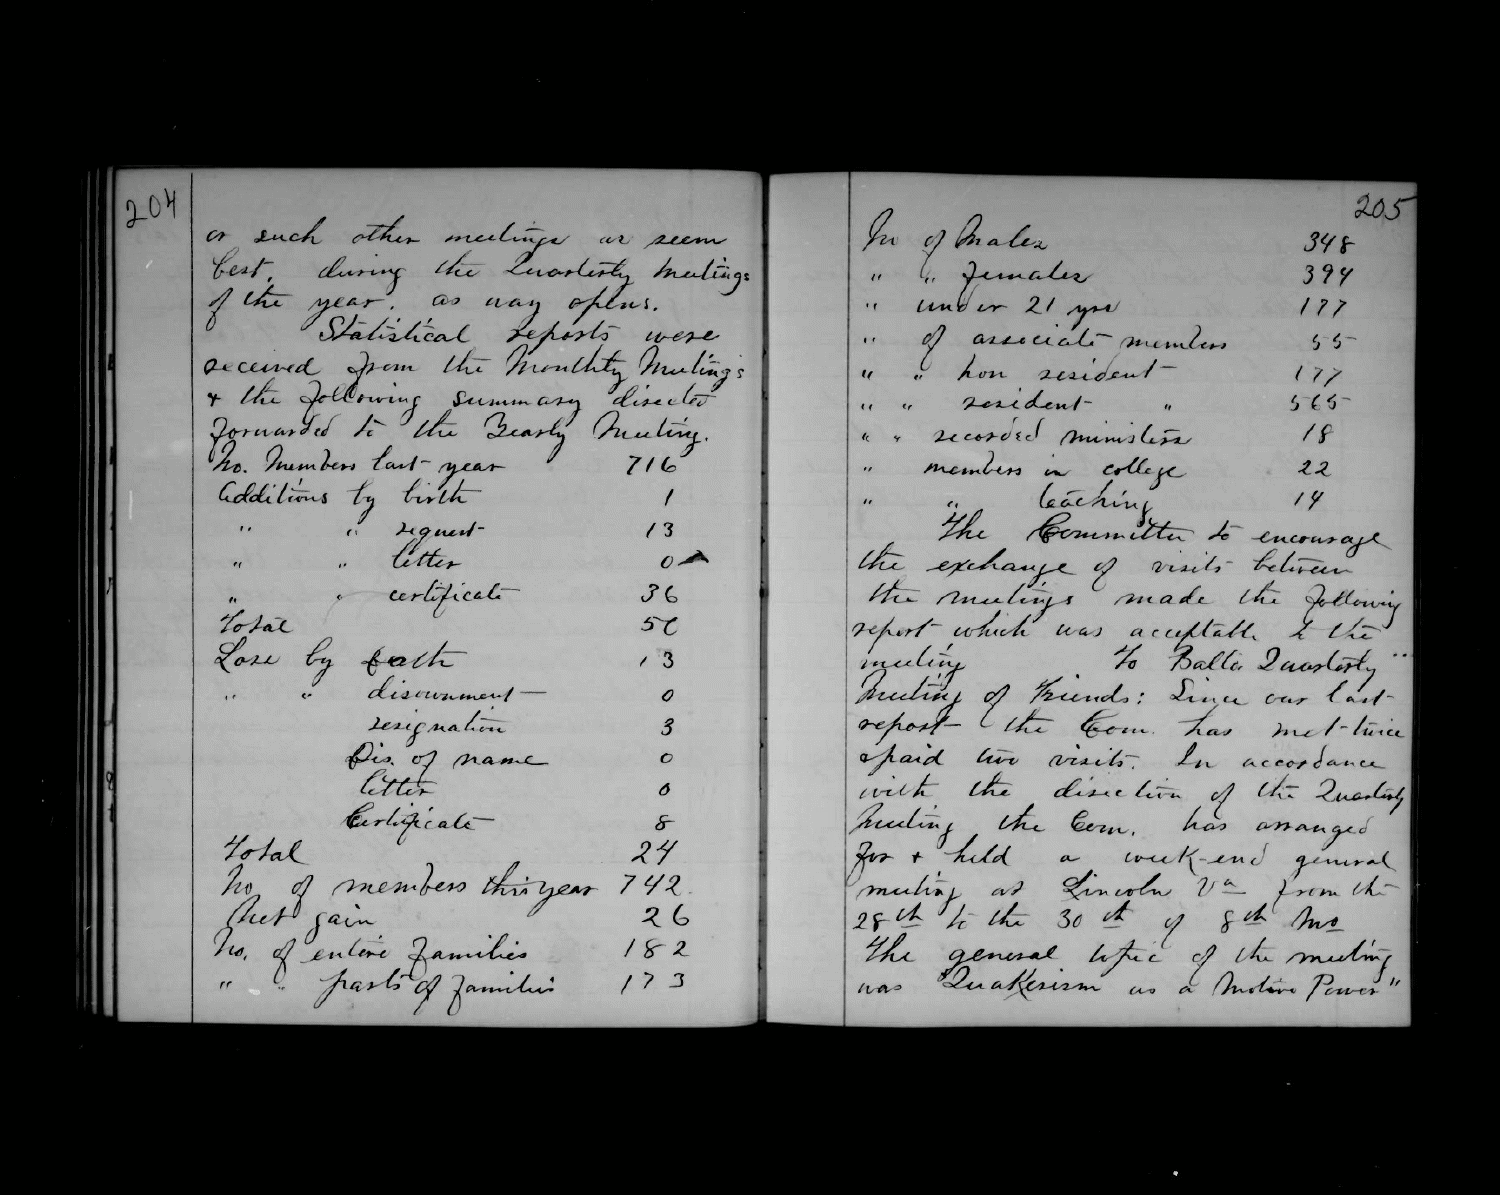 204
or such other meetings as seem
best, during the Quarterly Meetings
of the year, as way opens.
Statistical reports were
received from the Monthly Meetings
& the following summary directed
forwarded to the Yearly Meeting.
No. Members last year 716
Additions by birth 1
" " request 13
" " letter 0
" " certificate 36
Total 50
Loss by death 13
" " disownment 0
resignation 3
Dis. of name 0
letter 0
Certificate 8
Total 24
No of members this year 742.
Net gain 26
No. of entire families 182
" " parts of families 173
205
No of Males 348
" " females 394
" under 21 yrs 177
" of associate members 55
" " non resident 177
" " resident " 565
" " recorded ministers 18
" members in college 22
" " teaching 14
The Committee to encourage
the exchange of visits between
the meetings made the following
report which was acceptable to the
meeting To Balto Quarterly
Meeting of Friends: Since our last
report the Com. has met twice
& paid two visits. In accordance
with the direction of the Quarterly
Meeting the Com. has arranged
for & held a week-end general
meeting at Lincoln Va from the
28th to the 30th of 8th Mo
The general topic of the meeting
was "Quakerism as a Motive Power"